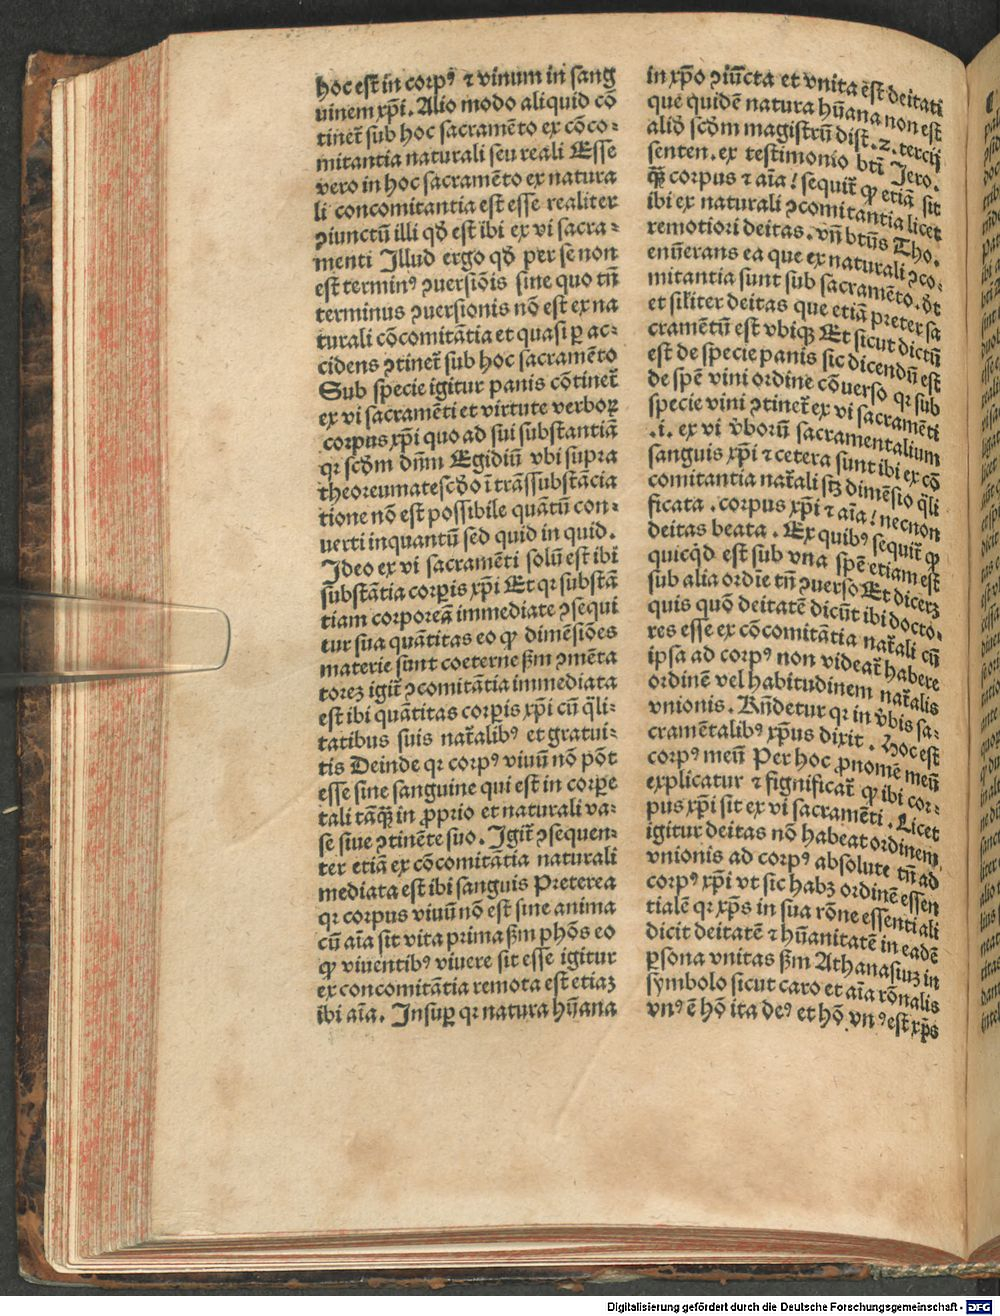 hoc est in corpꝰ ⁊ vinum in sang
uinem xp̄i. Alio modo aliquid cō
tinet̄ sub hoc sacramēto ex cōco-
mitantia naturali seu reali Esse
vero in hoc sacramēto ex natura
li concomitantia est esse realiter
ꝯiunctū illi qd̄ est ibi ex vi sacra-
menti Illud ergo qd̄ per se non
est terminꝰ ꝯuersiōis sine quo tn̄
terminus ꝯuersionis nō est ex na
turali cōcomitātia et quasi ꝑ ac-
cidens ꝯtinet̄ sub hoc sacramēto
Sub specie igitur panis cōtinet̄
ex vi sacramēti et virtute verboꝝ
corpus xp̄i quo ad sui substantiā
qꝛ scd̄m dn̄m Egidiū vbi supra
theoreumate scd̄o ī trāssubstācia
tione nō est possibile quātū con-
uerti inquantū sed quid in quid.
Ideo ex vi sacramēti solū est ibi
substātia corꝑis xp̄i Et qꝛ substā
tiam corporeā immediate ꝯsequi
tur sua quātitas eo ꝙ dimēsiōes
materie sunt coeterne ẜm ꝯmēta
torez igit̄ ꝯcomitātia immediata
est ibi quātitas corꝑis xp̄i cū q̄li-
tatibus suis nat̄alibꝰ et gratui-
tis Deinde qꝛ corpꝰ viuū nō pōt
esse sine sanguine qui est in corꝑe
tali tāqȝ in ꝓprio et naturali va-
se siue ꝯtinēte suo. Igit̄ ꝯsequen-
ter etiā ex cōcomitātia naturali
mediata est ibi sanguis Preterea
qꝛ corpus viuū nō est sine anima
cū aīa sit vita prima ẜm ph̄os eo
ꝙ viuentibꝰ viuere sit esse igitur
ex concomitātia remota est etiaz
ibi aīa. Insuꝑ qꝛ natura hūana
in xp̄o ꝯiūcta et vnita ēst deitati
que quidē natura hūana non est
aliō scd̄m magistrū dist̄.2.tercij
senten. ex testimonio bt̄i Jero.
qȝ corpus ⁊ aīa! sequit̄ ꝙ etiā sit
ibi ex naturali ꝯcomitantia licet
remotiori deitas. vn̄ btūs Tho.
enūerans ea que ex naturali ꝯco-
mitantia sunt sub sacramēto. dt̄
et silīter deitas que etiā preter sa
cramētū est vbiqꝫ Et sicut dictū
est de specie panis sic dicendū est
de spē vini ordine cōuerso qꝛ sub
specie vini ꝯtinet̄ ex vi sacramēti
.i. ex vi v̄borū sacramentalium
sanguis xp̄i ⁊ cetera sunt ibi ex cō
comitantia nat̄ali sꝫ dimēsio q̄li
ficata . corpus xp̄i ⁊ aīa! necnon
deitas beata. Ex quibꝰ sequit̄ ꝙ
quicqd̄ est sub vna spē etiam est
sub alia ordīe tn̄ ꝯuerso Et dicerꝫ
quis quō deitatē dicūt ibi docto-
res esse ex cōcomitātia nat̄ali cū
ipsa ad corpꝰ non videat̄ habere
ordinē vel habitudinem nat̄alis
vnionis. Rn̄detur qꝛ in v̄bis sa-
cramētalibꝰ xp̄us dixit. Hoc est
corpꝰ meū Per hoc ꝓnomē meū
explicatur ⁊ significat̄ ꝙ ibi cor-
pus xp̄i sit ex vi sacramēti. Licet
igitur deitas nō habeat ordinem
vnionis ad corpꝰ absolute tn̄ ad
corpꝰ xp̄i vt sic habꝫ ordinē essen
tialē qꝛ xp̄s in sua rōne essentiali
dicit deitatē ⁊ hūanitatē in eadē
ꝑsona vnitas ẜm Athanasiuz in
symbolo sicut caro et aīa rōnalis
vnꝰ ē hō ita deꝰ et hō vnꝰ est xp̄s
Digitalisierung gefördert durch die Deutsche Forschungsgemeinschaft - DFG